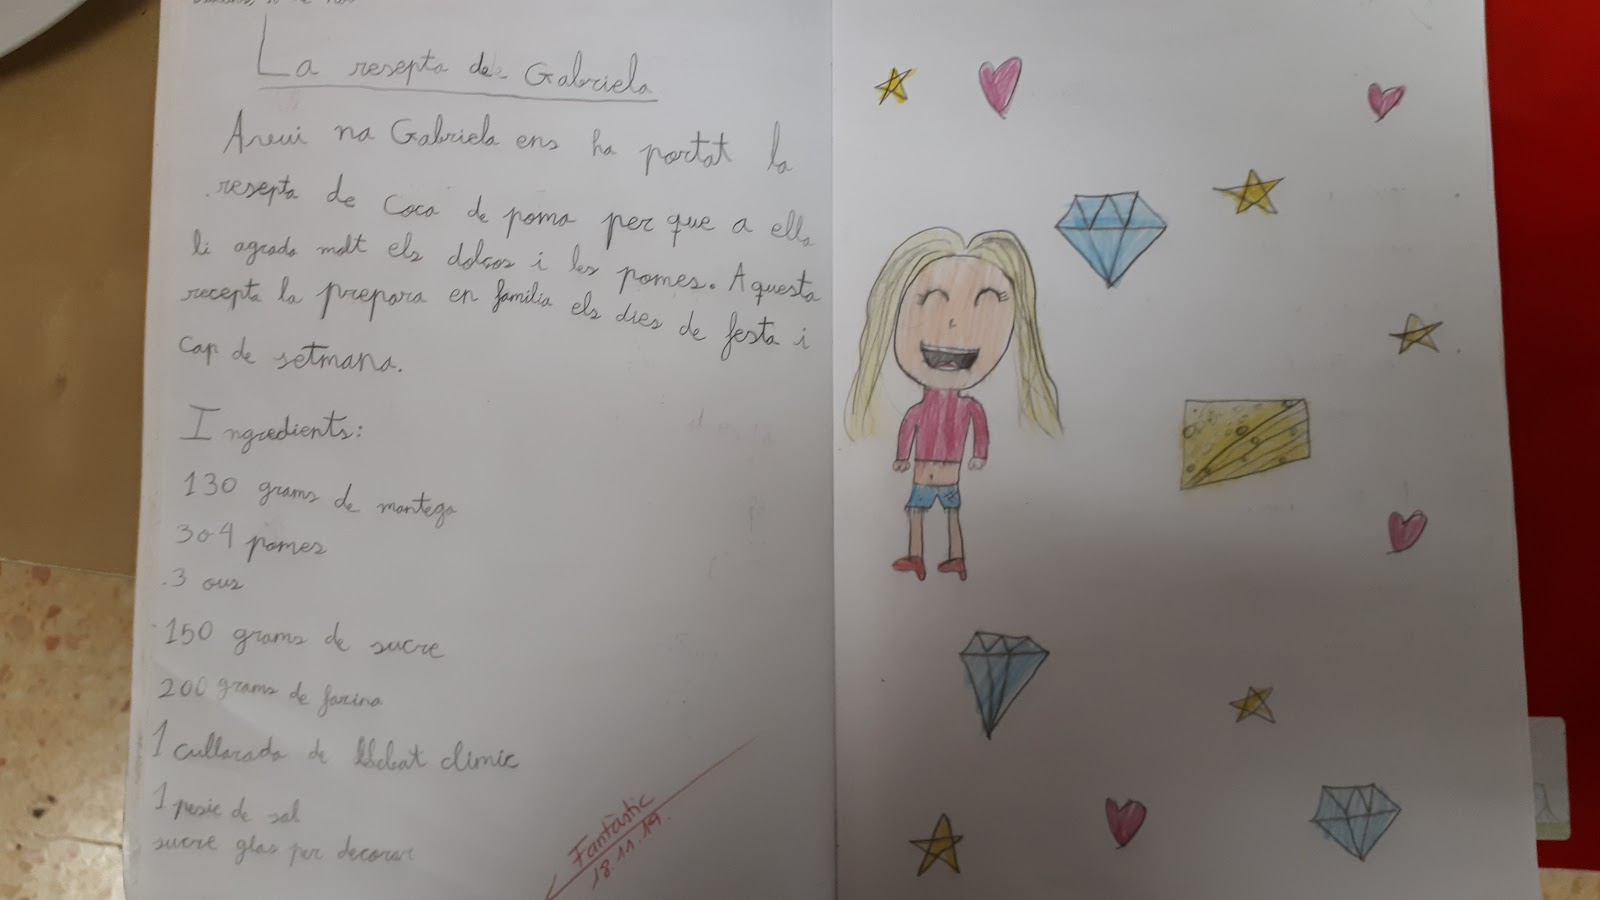 La resepta de Gabriela
Avui na Gabriela ens ha portat la
resepta de coca de poma per que a ella
li agrada molt els dolços i les pomes. Aquesta
recepta la prepara en familia els dies de festa i
cap de setmana.
Ingredients:
130 grams de mantega
3 o 4 pomes
3 ous
150 grams de sucre
200 grams de farina
1 cullarada de químic
1 pesic de sal
sucre glas per decorar
Fantàstic
18.11.19.